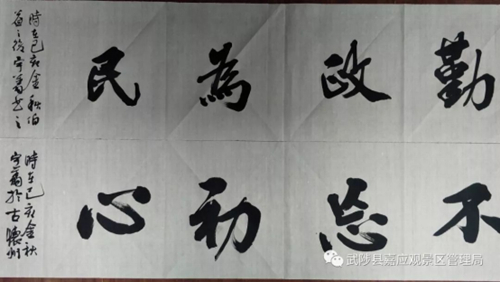 勤政為民
時在己亥金秋伯
不忘初心
時在己亥金秋
武陟县嘉应观景区管理局